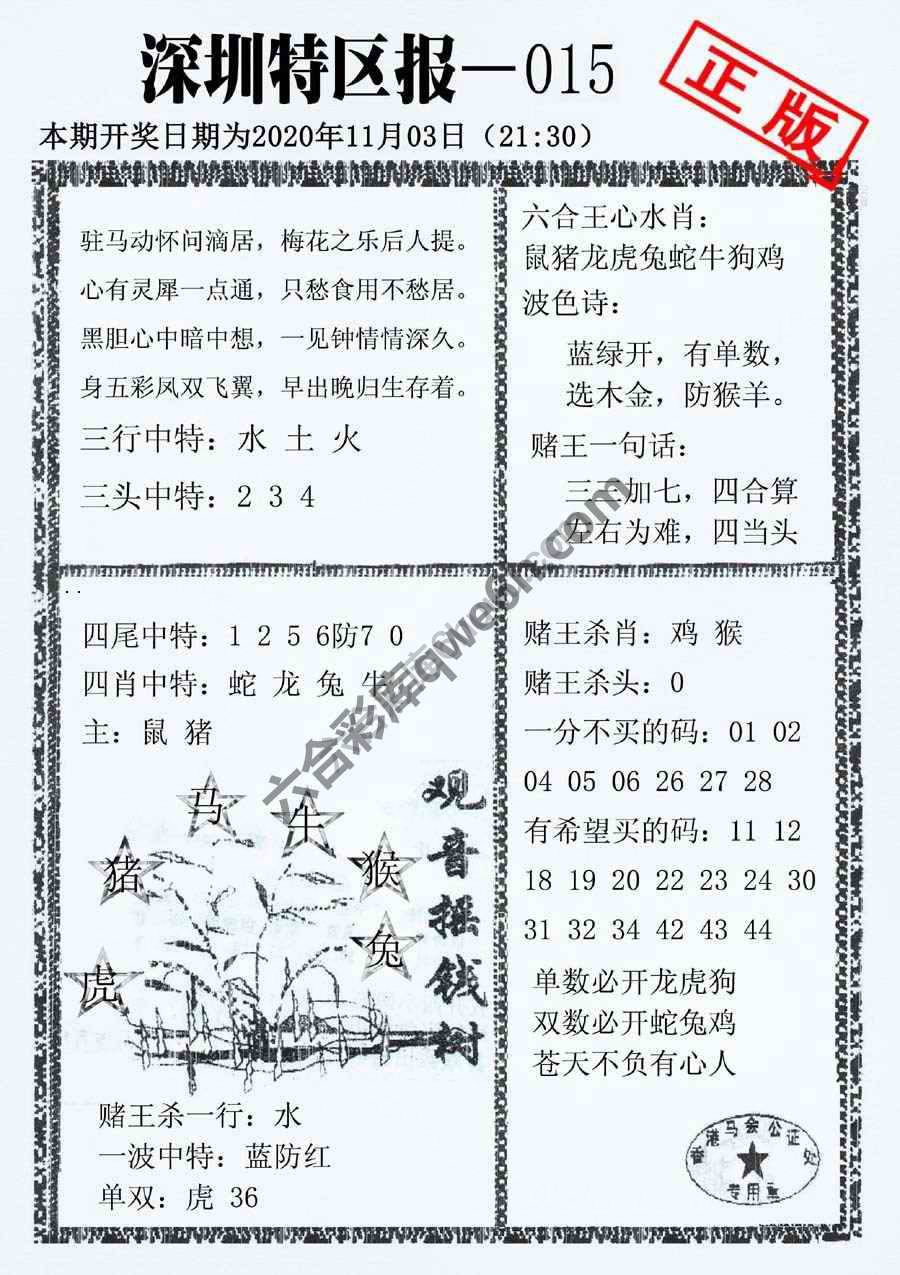 深圳特区报—015
正版
本期开奖日期为2020年11月03日（21:30）
驻马动怀问滴居，梅花之乐后人提。
心有灵犀一点通，只愁食用不愁居。
黑胆心中暗中想，一见钟情情深久。
身五彩凤双飞翼，早出晚归生存着。
三行中特：水 土 火
三头中特：2 3 4
六合王心水肖：
鼠猪龙虎兔蛇牛狗鸡
波色诗：
蓝绿开，有单数，
选木金，防猴羊。
赌王一句话：
三三加七，四合算
左右为难，四当头
四尾中特：1 2 5 6防7 0
四肖中特：蛇 龙 兔 牛
主：鼠 猪
马
牛
猪
猴
兔
虎
观音摇钱树
赌王杀一行：水
一波中特：蓝防红
单双：虎 36
赌王杀肖：鸡 猴
赌王杀头：0
一分不买的码：01 02
04 05 06 26 27 28
有希望买的码：11 12
18 19 20 22 23 24 30
31 32 34 42 43 44
单数必开龙虎狗
双数必开蛇兔鸡
苍天不负有心人
香港马会公证处
专用章
六合彩库qwe6h.com